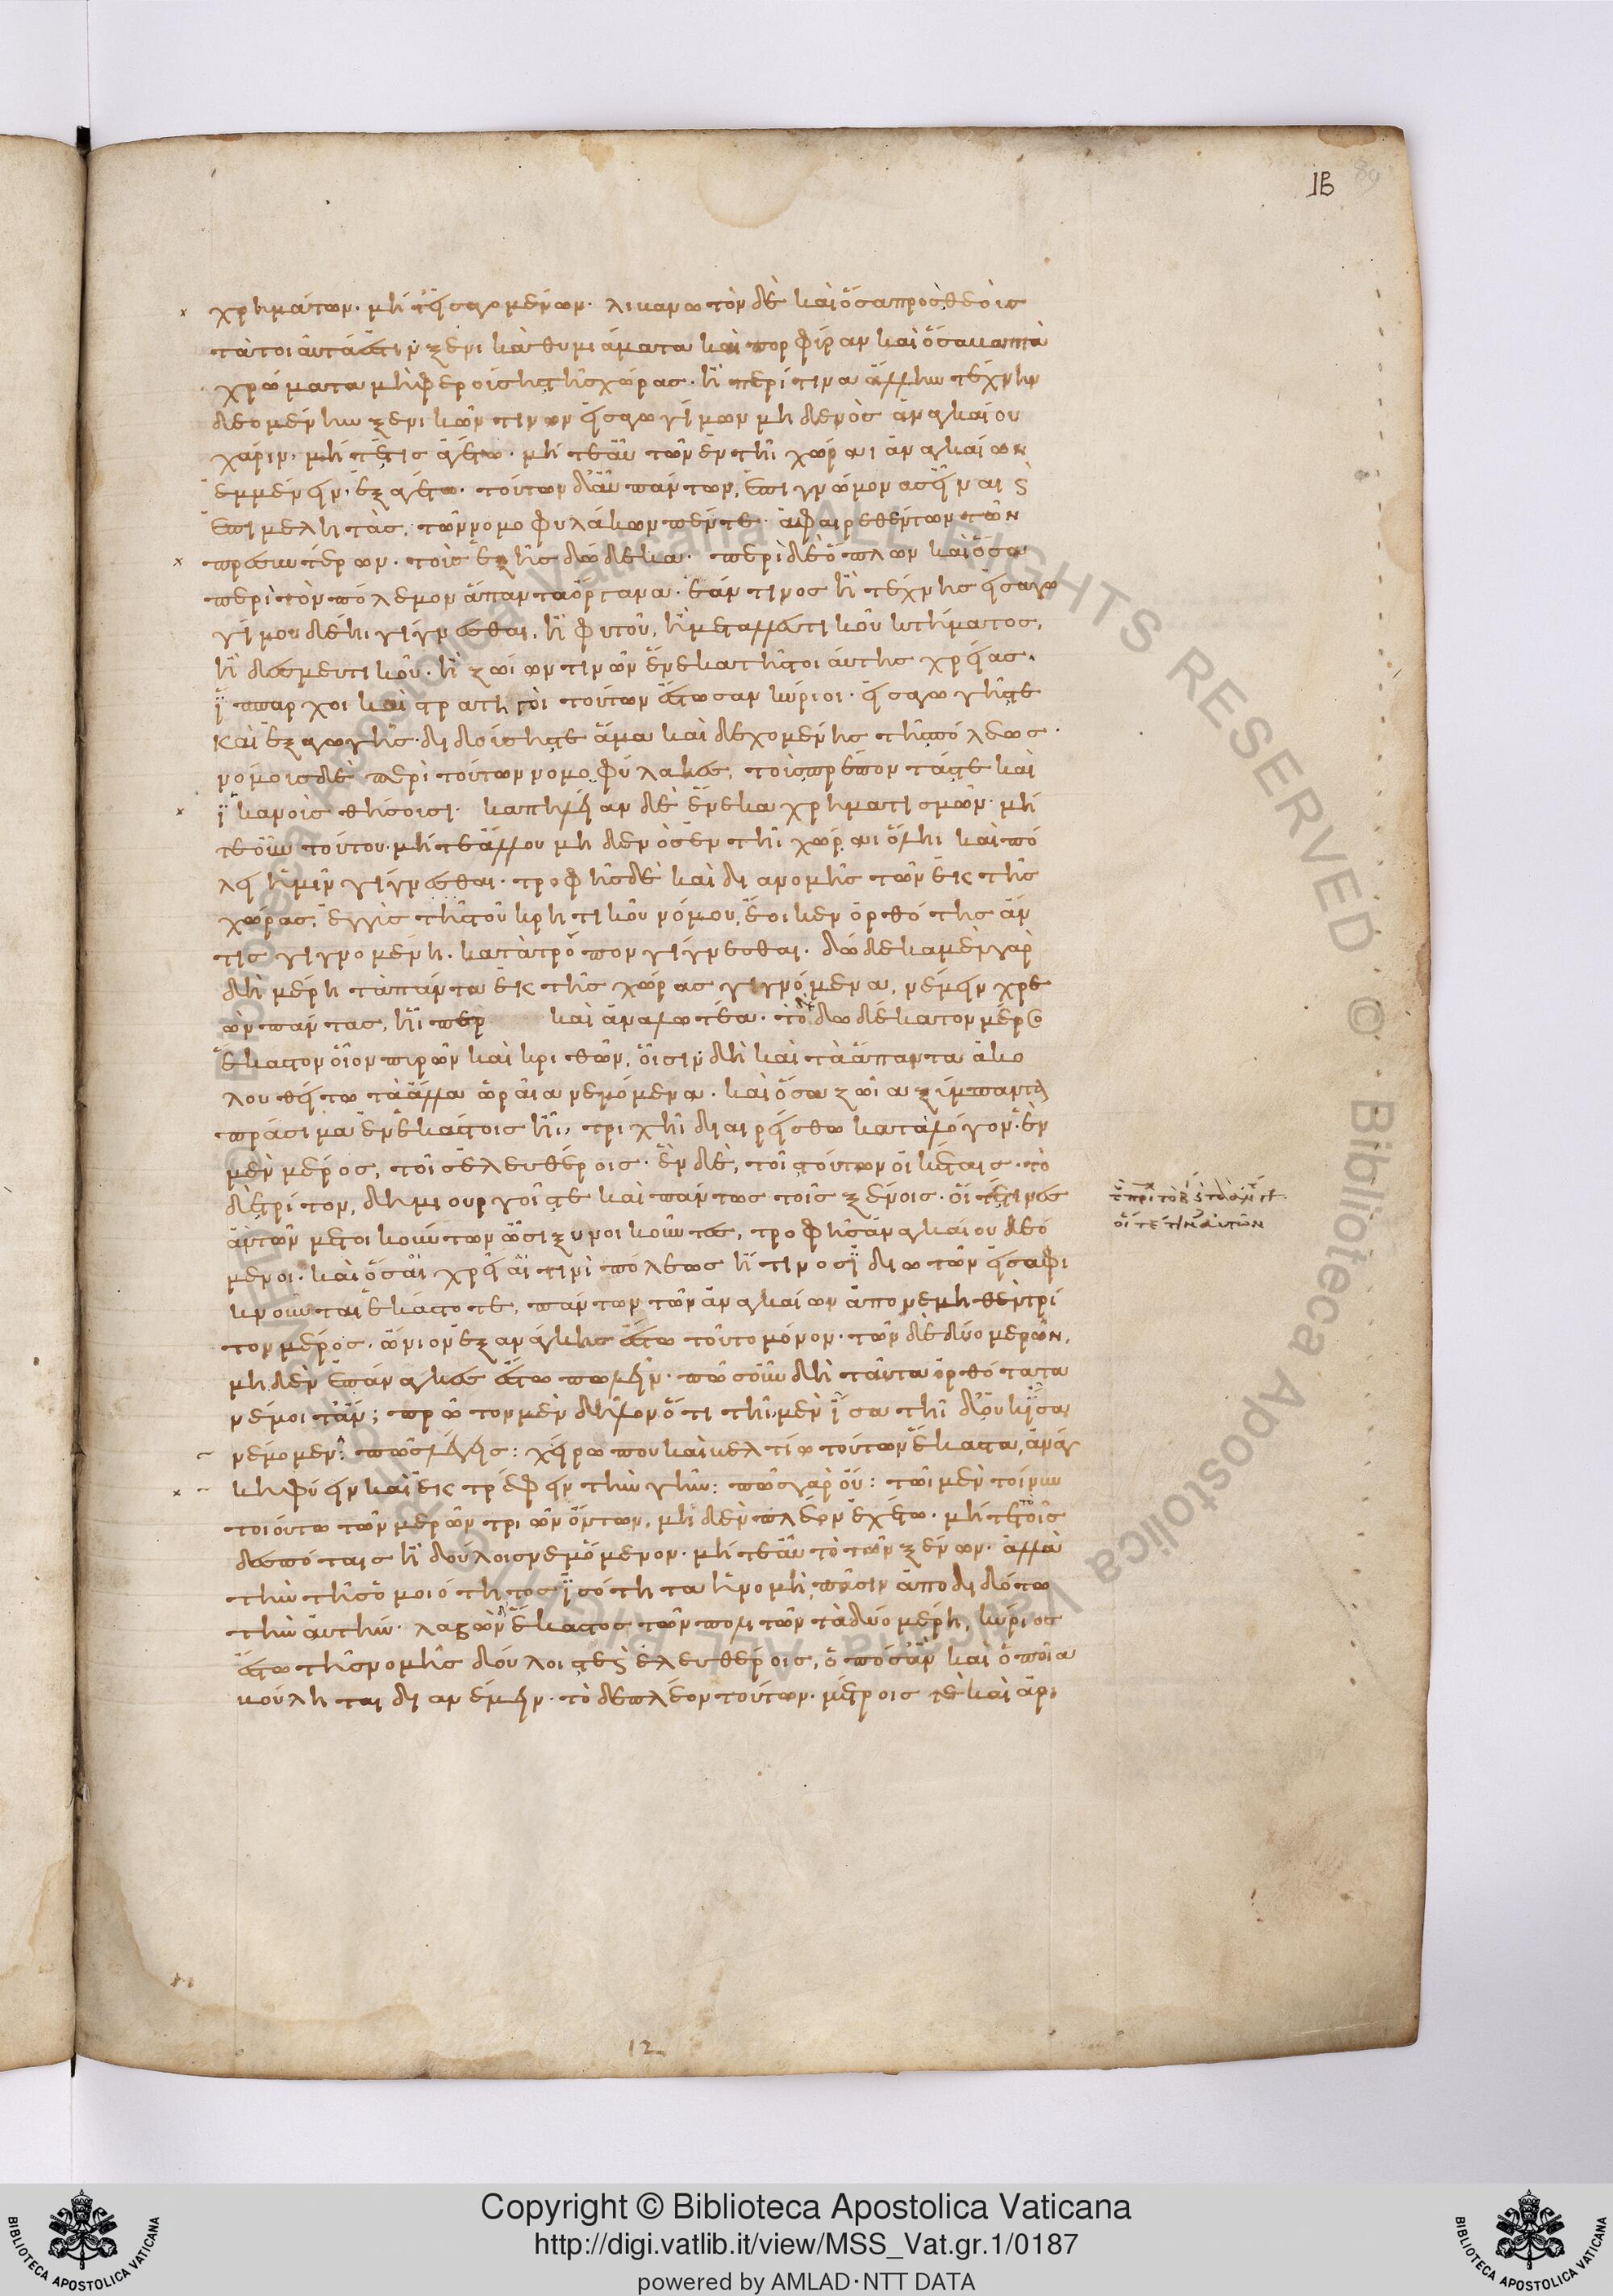 ιβ
89
χρημάτων· μήτε εἰσαγομένων· λιβανωτὸν δὲ καὶ ὅσα πρὸς θεοὺς
τὰ τοιαῦτά ἐστιν ξενικὰ θυμιάματα καὶ πορφύραν καὶ ὅσα βαπτὰ
χρώματα μὴ φερούσης τῆς χώρας· ἢ περί τινα ἄλλην τέχνην
δεομένην ξενικῶν τινων εἰσαγωγίμων μηδενὸς ἀναγκαίου
χάριν, μήτέ τις ἀγέτω· μήτε αὖ τῶν ἐν τῆι χώραι ἀναγκαίων
ἐμμένειν, ἐξαγέτω· τούτων δ' αὖ πάντων, ἐπιγνώμονας εἶναι ϗ
ἐπιμελητὰς, τῶν νομοφυλάκων πέντε ἀφαιρεθέντων τῶν
πρεσβυτέρων· τοὺς ἑξῆς δώδεκα· περὶ δὲ ὅπλων καὶ ὅσα
περὶ τὸν πόλεμον ἅπαντα ὄργανα· ἐάν τινος ἢ τέχνης εἰσαγω
γίμου δέηι γίγνεσθαι, ἢ φυτοῦ, ἢ μεταλλευτικοῦ κτήματος,
ἢ δεσμευτικοῦ· ἢ ζώιων τινῶν ἕνεκα τῆς τοιαύτης χρείας·
ἵππαρχοι καὶ στρατηγοὶ τούτων ἔστωσαν κύριοι· εἰσαγωγῆς τε
καὶ ἐξαγωγῆς· διδούσης τε ἅμα καὶ δεχομένης τῆς πόλεως·
νόμους δὲ περὶ τούτων νομοφύλακες, τοὺς πρέποντάς τε καὶ
ἱκανοὺς θήσουσι· καπηλείαν δὲ ἕνεκα χρηματισμῶν· μή
τε οὖν τούτου· μήτε ἄλλου μηδενὸς ἐν τῆι χώραι ὅληι καὶ πό
λει ἡμῖν γίγνεσθαι· τροφῆς δὲ καὶ διανομῆς τῶν ἐκ τῆς
χώρας, ἐγγὺς τῆς τοῦ κρητικοῦ νόμου, ἔοικεν ὀρθότης ἄν
τις γιγνομένη, κατὰ τρόπον γίγνεσθαι· δώδεκα μὲν γὰρ
δὴ μέρη τὰ πάντα ἐκ τῆς χώρας γιγνόμενα, νέμειν χρε
ὼν πάντας, ἧιπερ καὶ ἀναλωτέα· τὸ δὲ δωδέκατον μέρος
ἕκαστον οἷον πυρῶν καὶ κριθῶν, οἷσιν δὴ καὶ τὰ ἅπαντα ἀκο
λουθείτω τὰ ἄλλα ὡραῖα νεμόμενα· καὶ ὅσα ζῶια ξύμπαντα
πράσιμα ἐν ἑκάστοις ἦι, τριχῆι διαιρείσθω κατὰ λόγον· ἓν
μὲν μέρος, τοῖς ἐλευθέροις· ἓν δὲ, τοῖς τούτων οἰκέταις· τὸ
δὲ τρίτον, δημιουργοῖς τε καὶ πάντως τοῖς ξένοις· οἵ τέ τινες
αὐτῶν μετοικούντων ὦσι ξυνοικοῦντες, τροφῆς ἀναγκαίου δεό
μενοι· καὶ ὅσοι χρείαι τινὶ πόλεως ἤ τινος ἰδιωτῶν εἰσαφι
κνοῦνται ἑκάστοτε, πάντων τῶν ἀναγκαίων ἀπονεμηθὲν τρί
τον μέρος· ὤνιον ἐξ ἀνάγκης ἔστω τοῦτο μόνον· τῶν δὲ δύο μερῶν,
μηδὲν ἐπάναγκες ἔστω πωλεῖν· πῶς οὖν δὴ ταῦτα ὀρθότατα
νέμοιτ' ἄν; πρῶτον μὲν δῆλον ὅτι τῆι μὲν ἴσα τῆι δ' οὐκ ἴσα
νέμομεν: πῶς λέγεις: χείρω που καὶ βελτίω τούτων ἕκαστα, ἀνάγ
κη φύειν καὶ ἐκτρέφειν τὴν γῆν: πῶς γὰρ οὔ: τῶι μὲν τοίνυν
τοιούτω τῶν μερῶν τριῶν ὄντων, μηδὲν πλέον ἐχέτω· μήτε τὸ τοῖς
δεσπόταις ἢ δούλοις νεμόμενον· μήτε αὖ τὸ τῶν ξένων· ἀλλὰ
τὴν τῆς ὁμοιότητος ἰσότητα ἡ νομὴ πᾶσιν ἀποδιδότω
τὴν αὐτήν· λαβὼν δ' ἕκαστος τῶν πολιτῶν τὰ δύο μέρη, κύριος
ἔστω τῆς νομῆς δούλοις τε ϗ ἐλευθέροις, ὁπόσ' ἂν καὶ ὁποῖα
βούληται διανέμειν· τὸ δὲ πλέον τούτων· μέτροις τε καὶ ἀρι
οἵ τέ τινες αὐτῶν
12
Copyright © Biblioteca Apostolica Vaticana
http://digi.vatlib.it/view/MSS_Vat.gr.1/0187
powered by AMLAD·NTT DATA